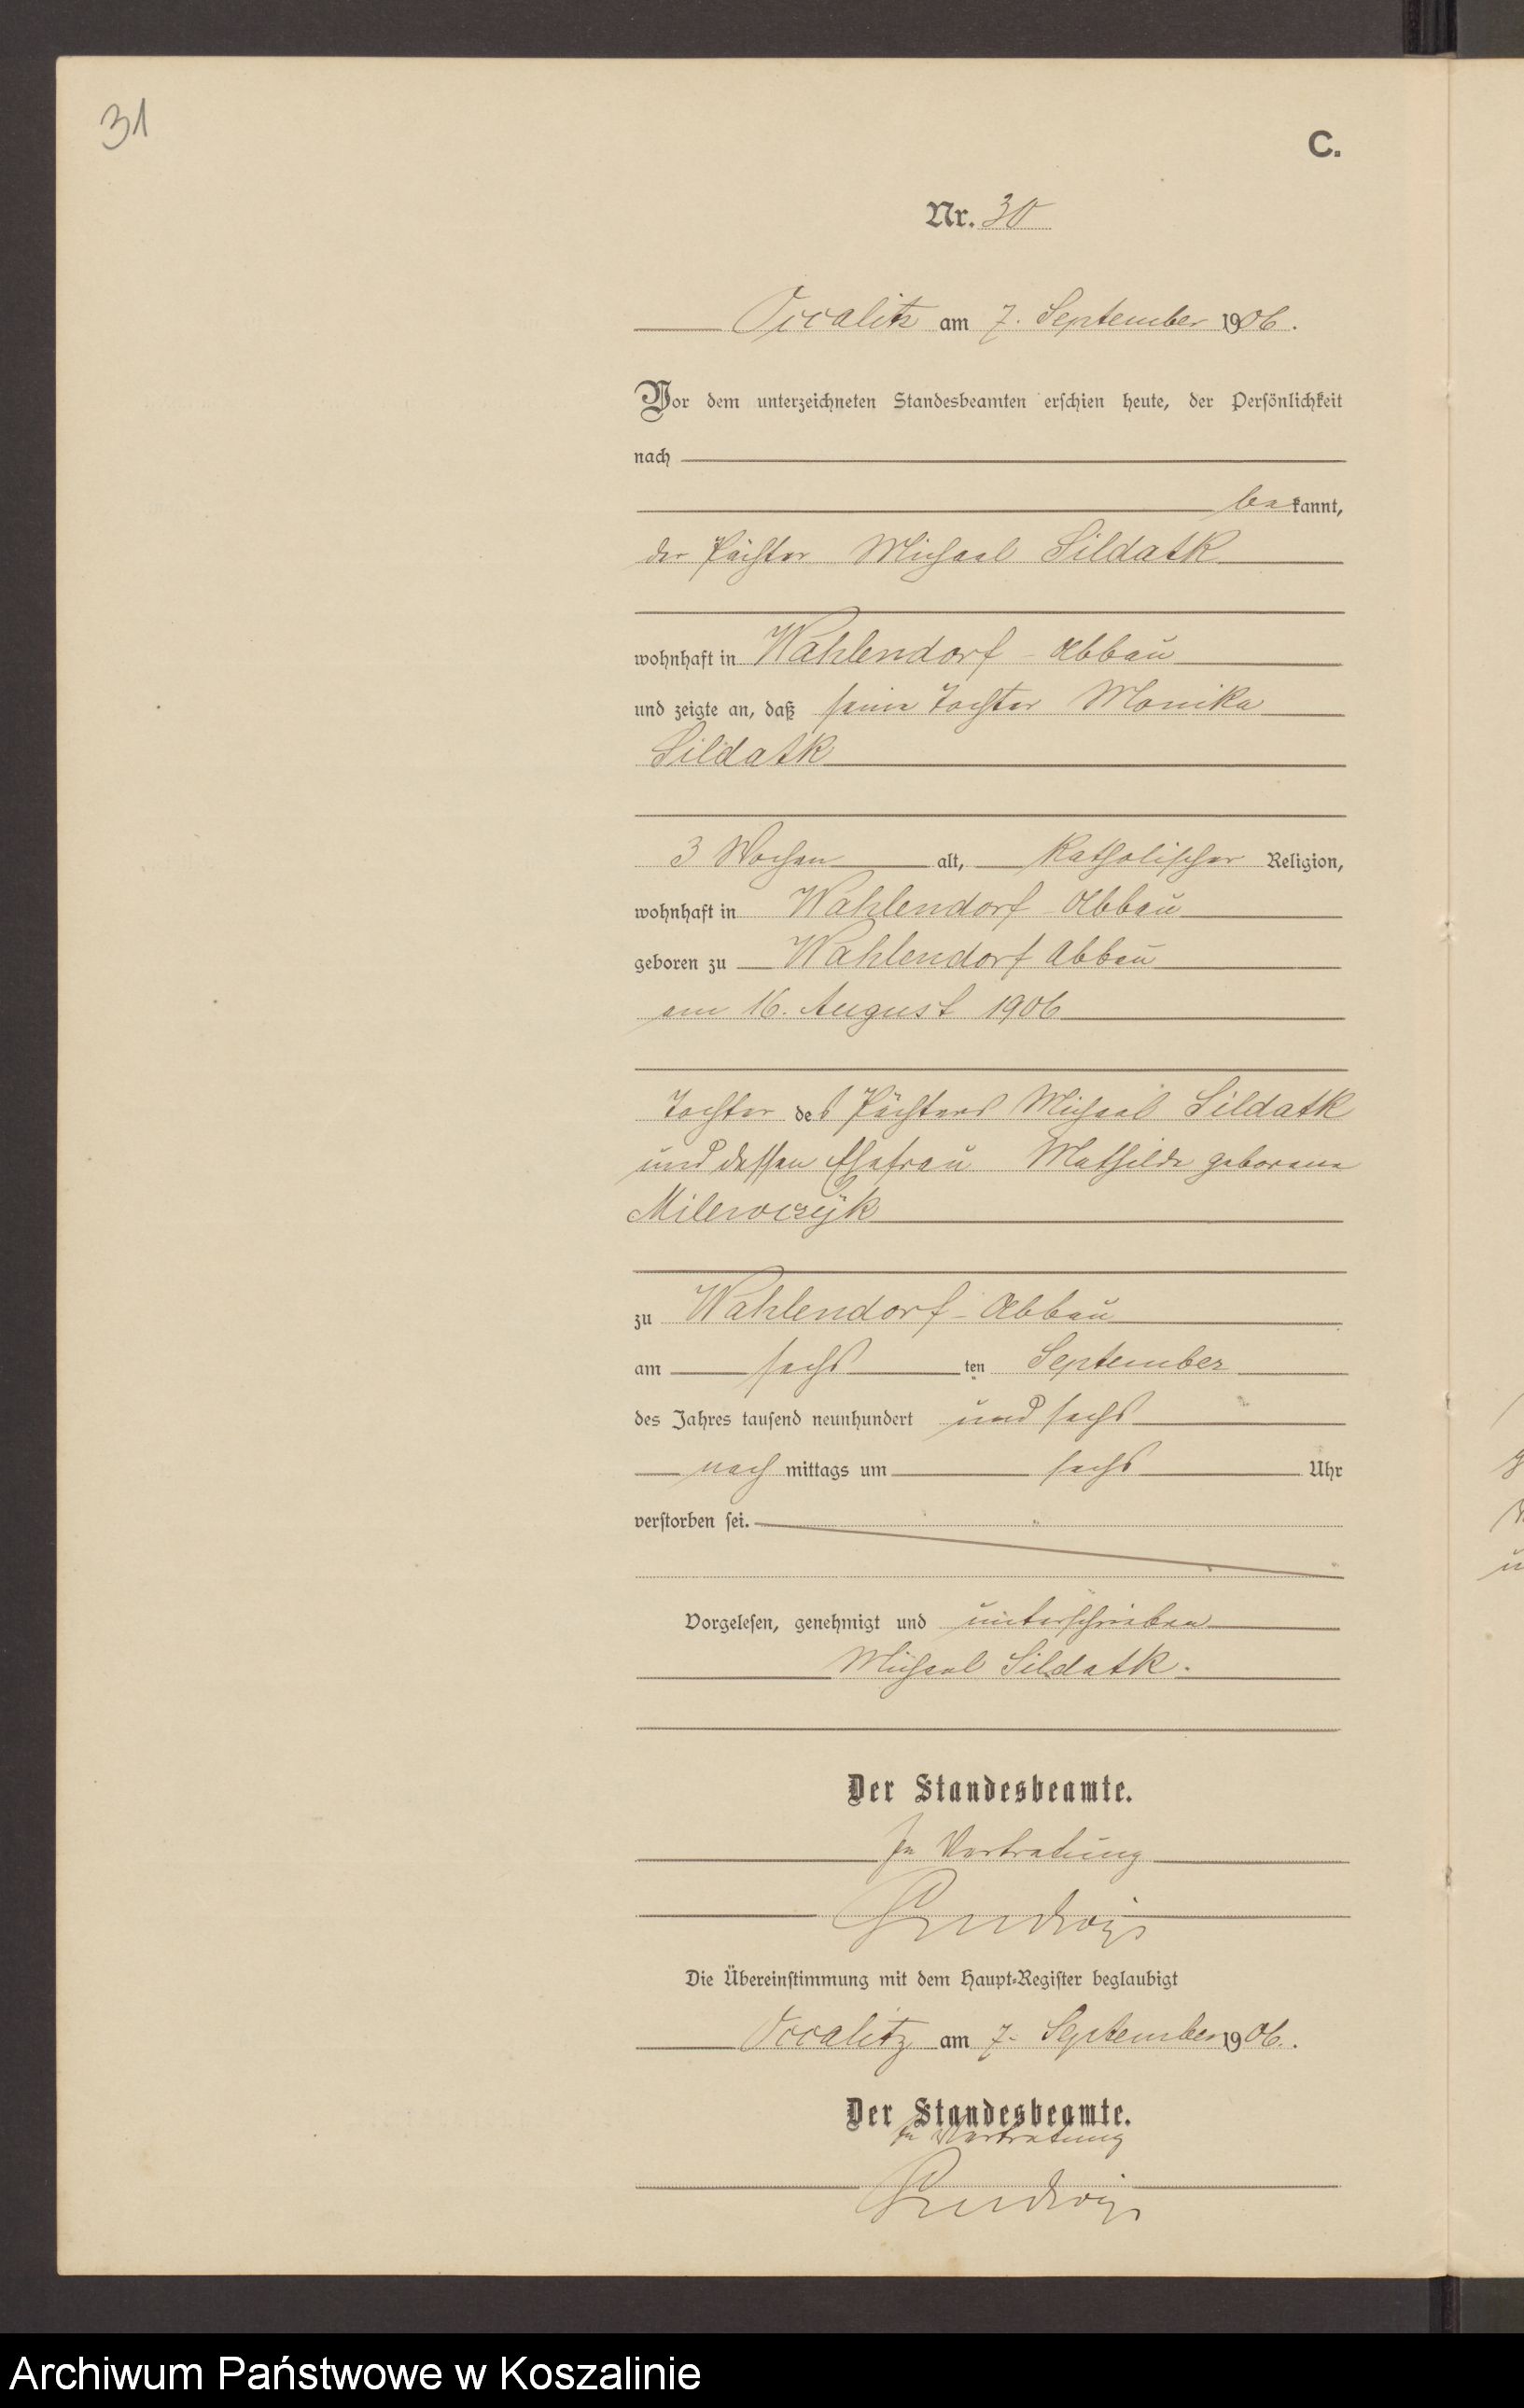 31
C.
Nr. 30
Occalitz am 7. September 1906.
Vor dem unterzeichneten Standesbeamten erschien heute, der Persönlichkeit
nach
bekannt,
der Pächter Michael Sildatk
wohnhaft in Wahlendorf-Abbau
und zeigte an, daß seine Tochter Monika
Sildatk
3 Wochen alt, katholischer Religion,
wohnhaft in Wahlendorf-Abbau
geboren zu Wahlendorf Abbau
am 16. August 1906
Tochter des Pächters Michael Sildatk
und dessen Ehefrau Mathilde geborene
Milewczÿk
zu Wahlendorf-Abbau
am sechsten September
des Jahres tausend neunhundert und sechs
nachmittags um sechs Uhr
verstorben sei.
Vorgelesen, genehmigt und unterschrieben
Michael Sildatk.
Der Standesbeamte.
In Vertretung
Die Übereinstimmung mit dem Haupt-Register beglaubigt
Occalitz am 7. September 1906.
Der Standesbeamte.
In Vertretung
Archiwum Państwowe w Koszalinie